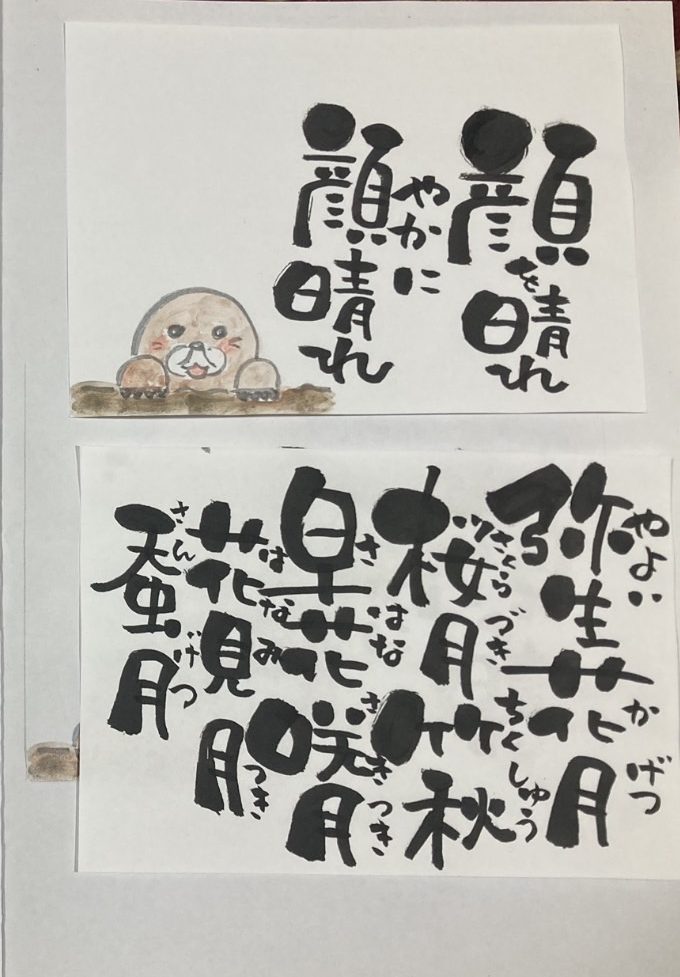 顔を晴れ
顔やかに晴れ
弥生花月
やよい かげつ
桜月竹秋
さくらづき ちくしゅう
早花咲月
さはなさきつき
花見月
はなみつき
蚕月
さんげつ